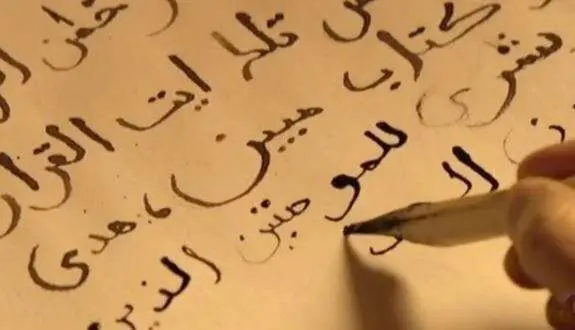 تلك ايت القران
كتاب مبين ، هدى
بشرى للمومنين الذين